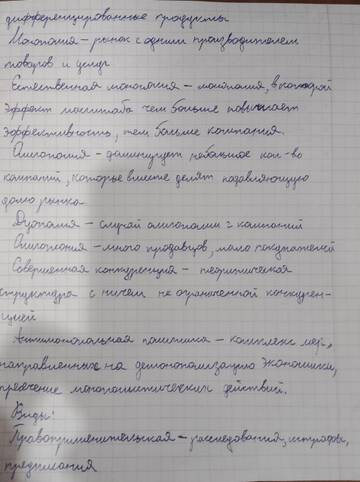 дифференцированные продукты
Монополия – рынок с одним производителем
товаров и услуг
Естественная монополия – монополия, в которой
эффект масштаба чем больше повышает
эффективность, тем больше компания.
Олигополия – доминирует небольшое кол-во
компаний, которые вместе делят подавляющую
долю рынка
Дуополия – случай олигополии 2 компаний
Олигопония – много продавцов, мало покупателей
Совершенная конкуренция – теоритическая
структура с ничем не ограниченной конкурен-
цией
Антимонопольная политика – комплекс мер,
направленных на демонополизацию экономики,
пресечение монополистических действий.
Виды:
Правоприменительская – расследования, штрафы,
предписания